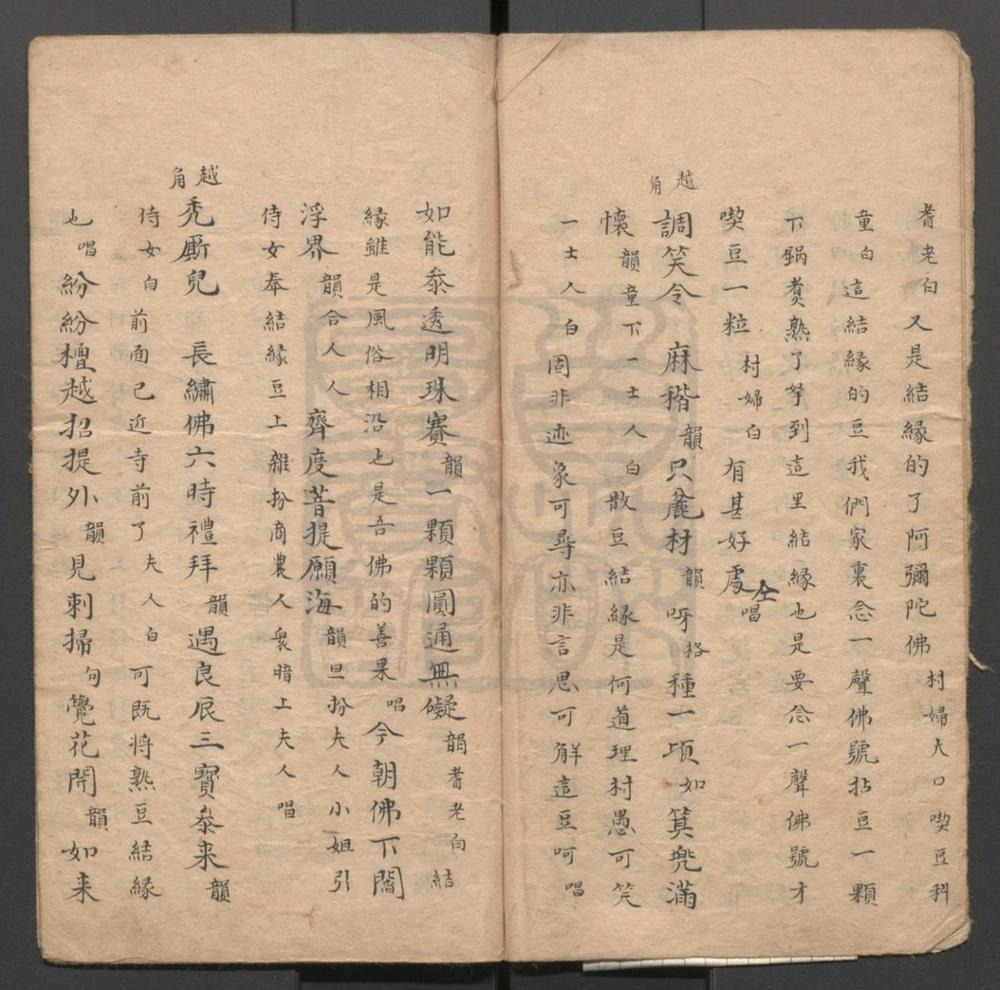 耆老白又是結緣的了阿彌陀佛村婦大口喫豆科
童白這結緣的豆我們家裏念一聲佛號拈豆一顆
下鍋煑熟了拏到這里結緣也是要念一聲佛號才
喫豆一粒村婦白有甚好處仝唱
越角
調笑令 麻稭韻只麄材韻呀格種一項如箕兠滿
懷韻童下一士人白散豆結緣是何道理村愚可笑
一士人白固非迹象可尋亦非言思可觧這豆呵唱
如能叅透明珠賽韻一顆顆圓通無礙韻耆老白結
緣雖是風俗相沿也是吾佛的善果唱今朝佛下閻
浮界韻合人人齊度菩提願海韻旦扮夫人小姐引
侍女奉結緣豆上雜扮商農人衆暗上夫人唱
越角
禿厮兒 長繡佛六時禮拜韻遇良辰三寳叅来韻
侍女白前面已近寺前了夫人白可既将熟豆結緣
也唱紛紛檀越招提外韻見刺掃句覺花開韻如来